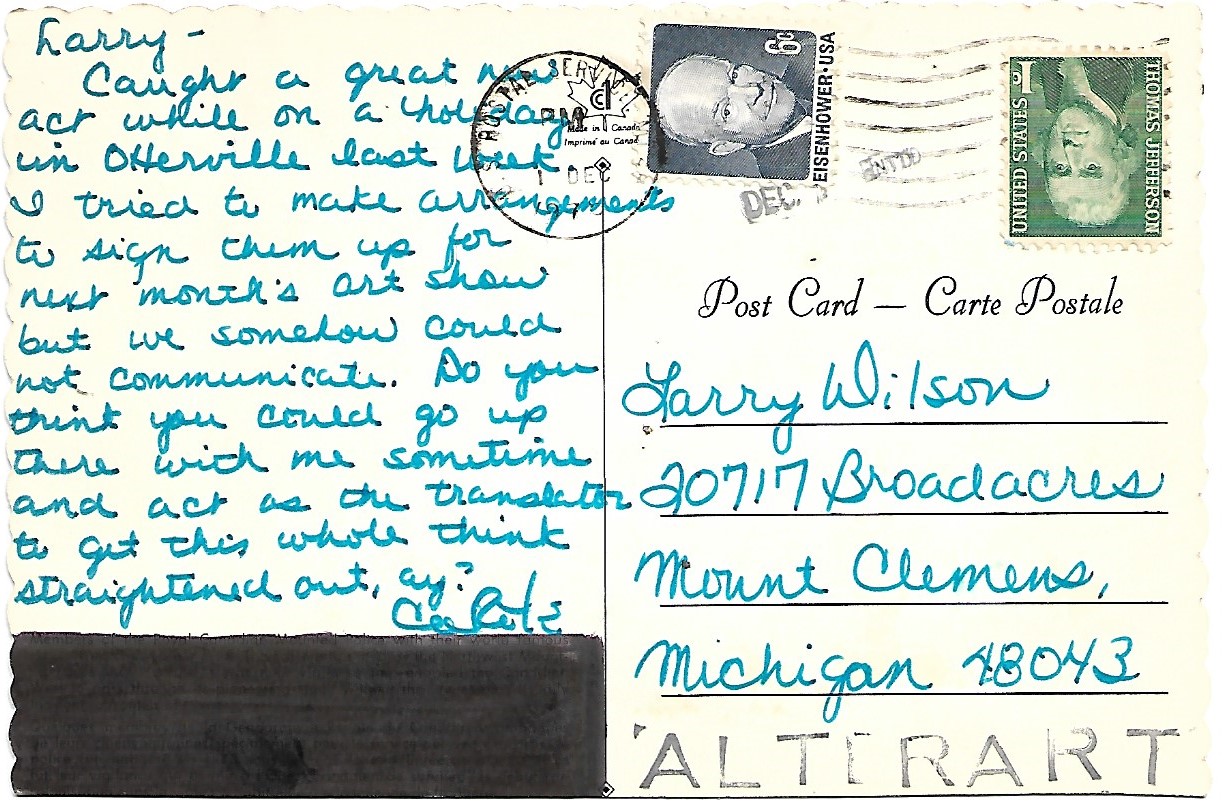 Larry -
Caught a great new
act while on a holiday
in Otterville last week
I tried to make arrangements
to sign them up for
next month's art show
but we somehow could
not communicate. Do you
think you could go up
there with me sometime
and act as the translator
to get this whole think
straightened out, ay?
POSTAL SERVICE
PM
1 DEC
197
Made in Canada
Imprimé au Canada
6¢
EISENHOWER·USA
DEC
1¢
UNITED STATES
THOMAS JEFFERSON
Post Card — Carte Postale
Larry Wilson
20717 Broadacres
Mount Clemens,
Michigan 48043
'ALTERART'